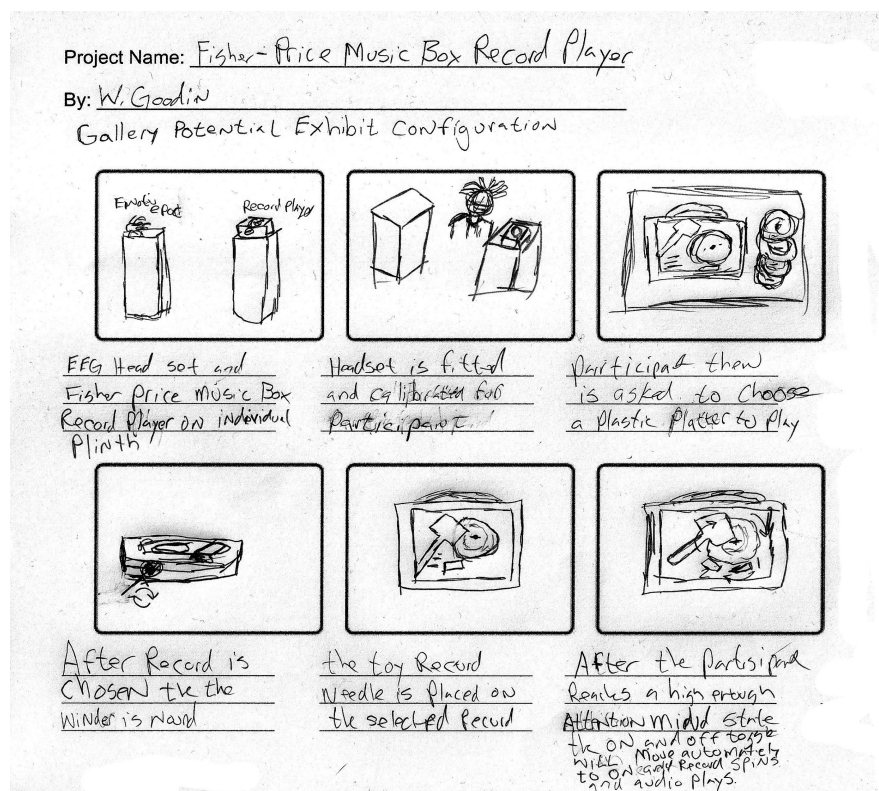 Project Name: Fisher-Price Music Box Record Player
By: W. Goodin
Gallery Potential Exhibit Configuration
Emotiv epoc
Record Player
EEG Head set and
Fisher Price Music Box
Record Player on individual
Plinth
Headset is fitted
and calibrated for
Participant.
Participant then
is asked to choose
a plastic Platter to Play
After Record is
Chosen the the
winder is wound
the toy Record
Needle is Placed on
the selected Record
After the Partisipant
Reaches a high enough
Attention state
the ON and off toggle
will Move automaticly
to ON Record spins
and audio plays.